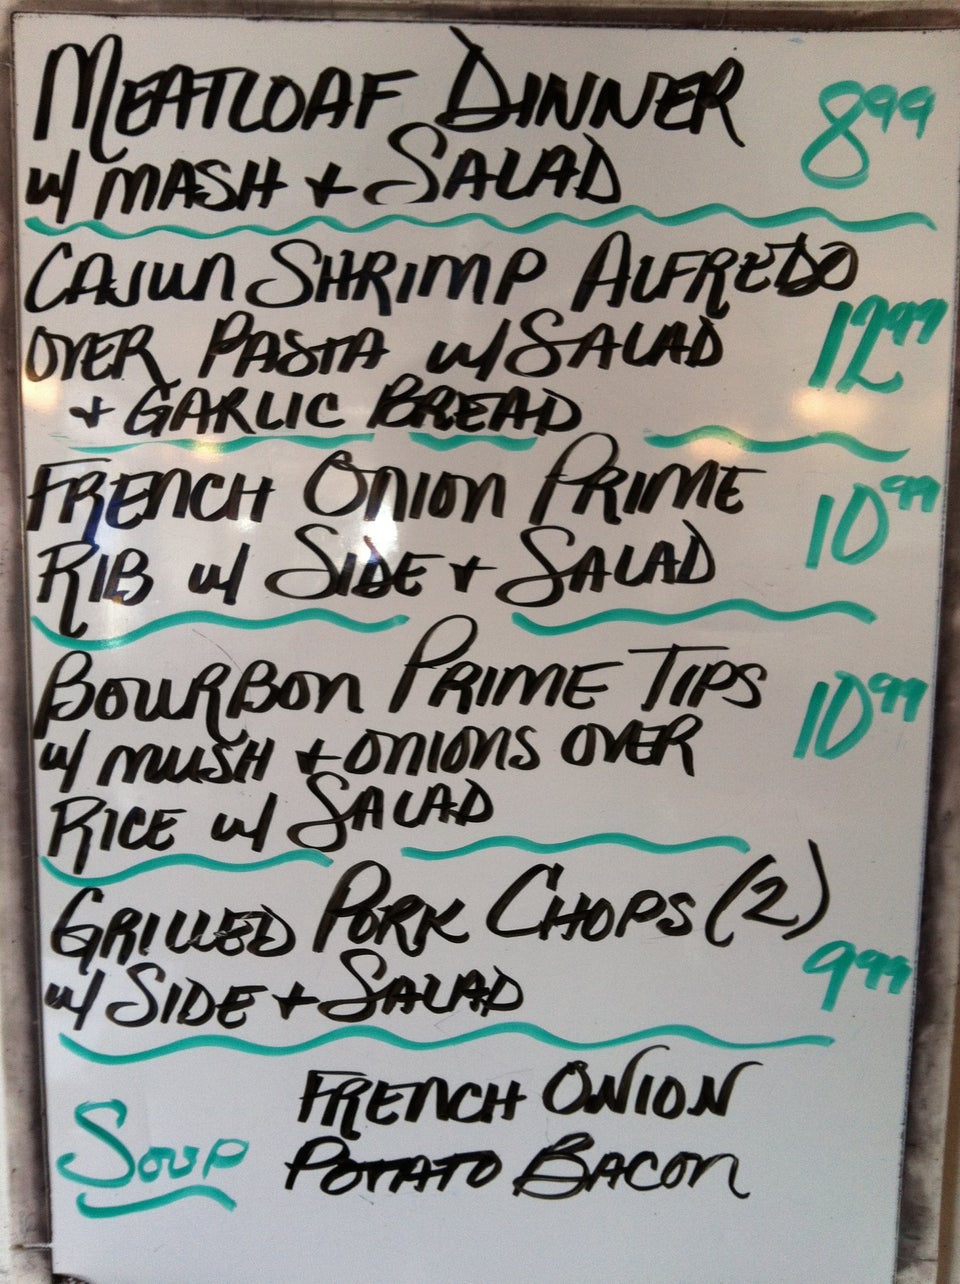 MEATLOAF DINNER 8.99
w/ MASH + SALAD
CAJUN SHRIMP ALFREDO
OVER PASTA w/ SALAD 12.99
+ GARLIC BREAD
FRENCH ONION PRIME 10.99
RIB w/ SIDE + SALAD
BOURBON PRIME TIPS 10.99
w/ MUSH + ONIONS OVER
RICE w/ SALAD
GRILLED PORK CHOPS (2)
w/ SIDE + SALAD 9.99
FRENCH ONION
SOUP POTATO BACON